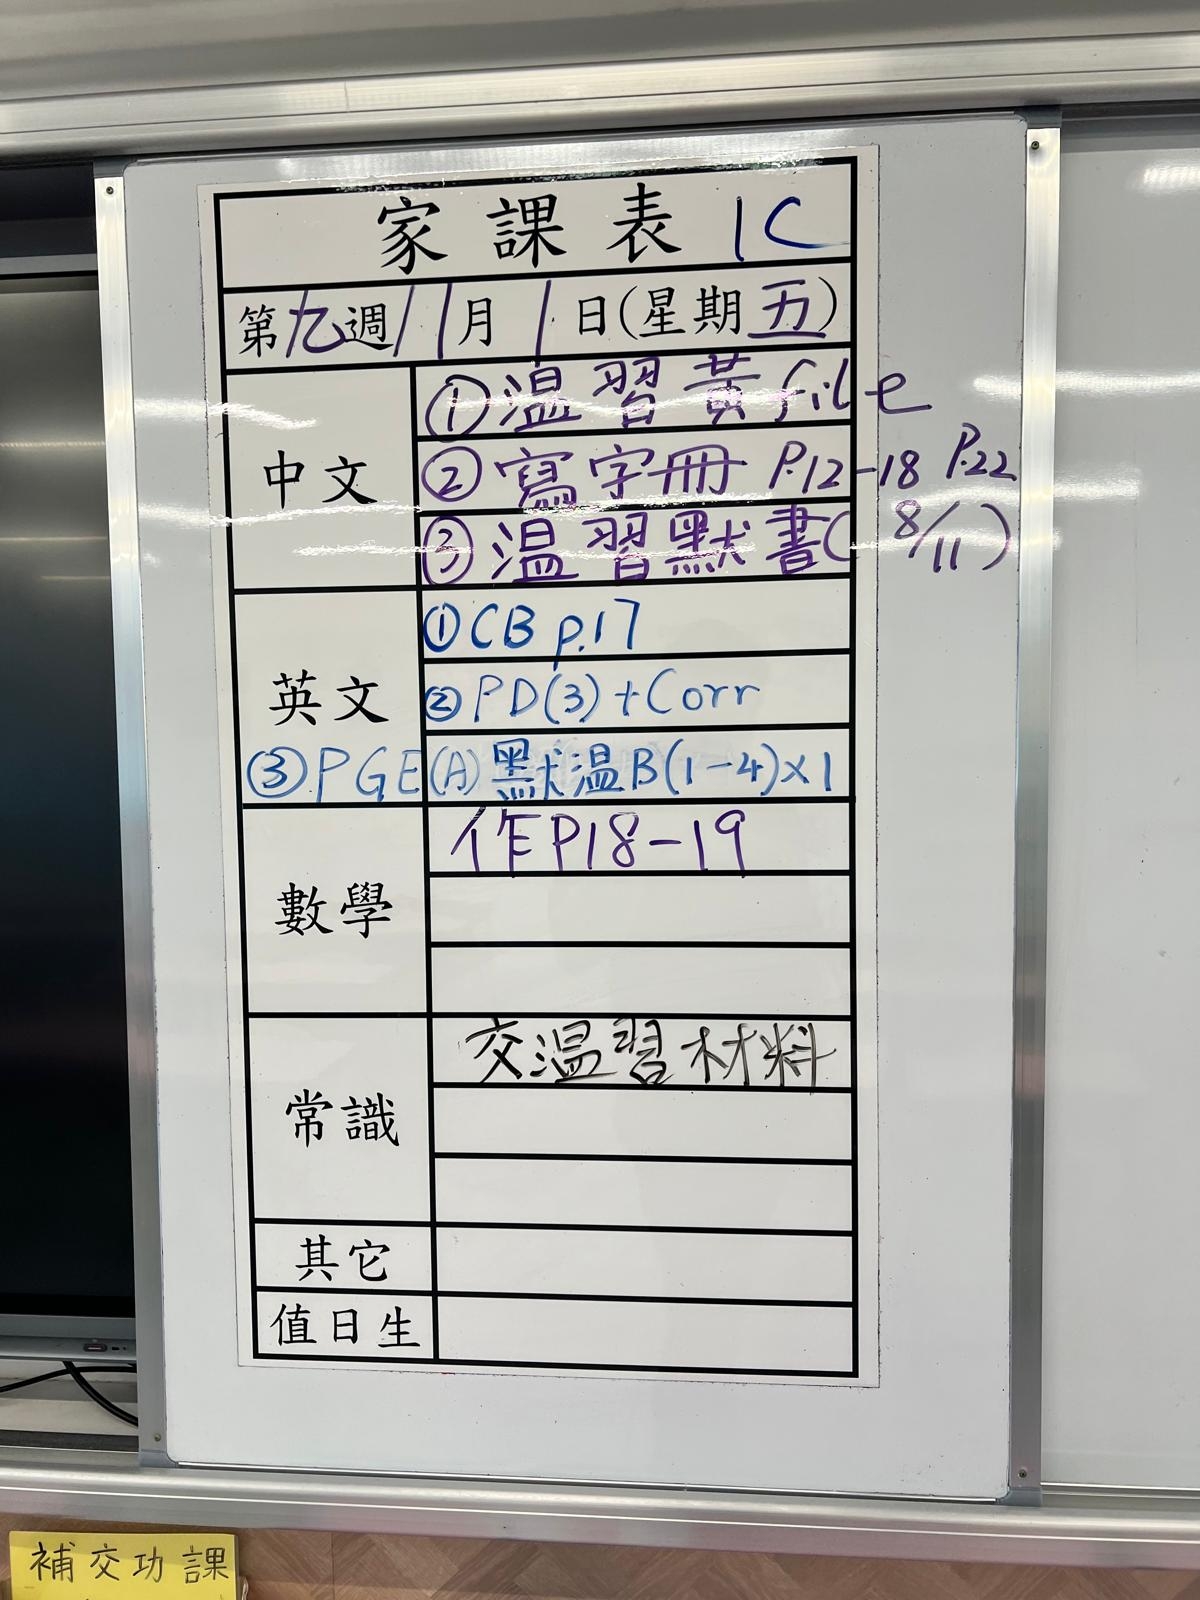 家課表 1C
第九週11月1日(星期五)
中文
①温習黃file
②寫字冊 P.12-18 P.22
③温習默書(8/11)
英文
①CB p.17
②PD(3)+Corr
③PGE(A)默温B(1-4)x1
數學
作P18-19
常識
交温習材料
其它
值日生
補交功課